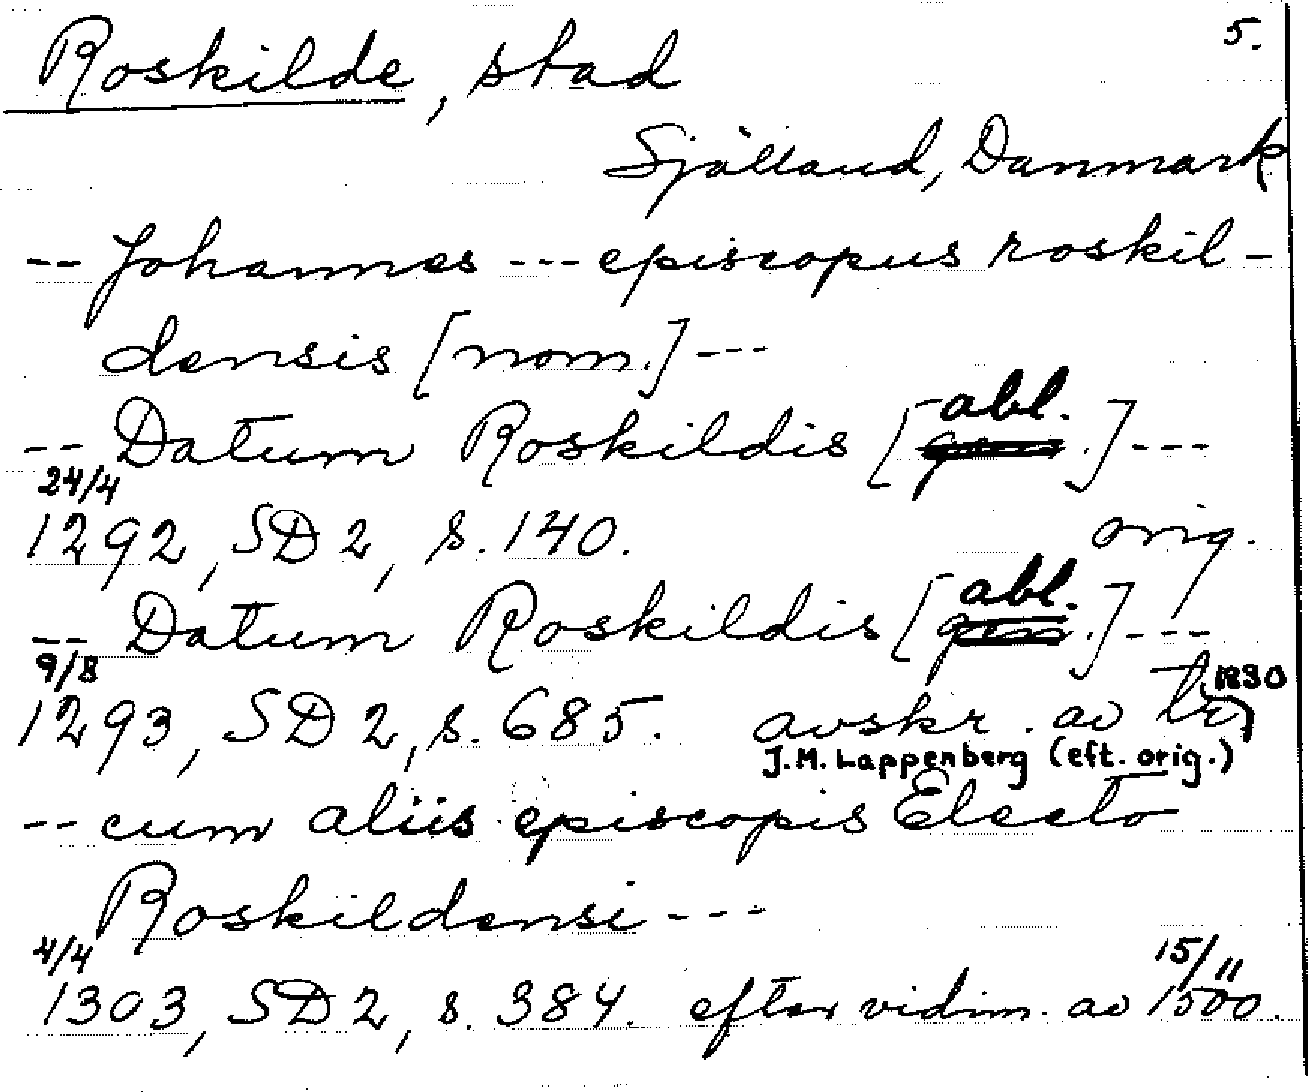 5.
Roskilde, stad
Själland, Danmark
-- Johannes --- episcopus roskil-
densis [nom.] ---
-- Datum Roskildis [abl. gen.] ---
24/4
1292, SD 2, s. 140. orig.
-- Datum Roskildis [abl. gen.] ---
9/8
1293, SD 2, s. 685. avskr. av 1830
J.M. Lappenberg (eft. orig.)
-- cum aliis episcopis Electo
Roskildensi ---
4/4 15/11
1303, SD 2, s. 384. efter vidim. av 1500.